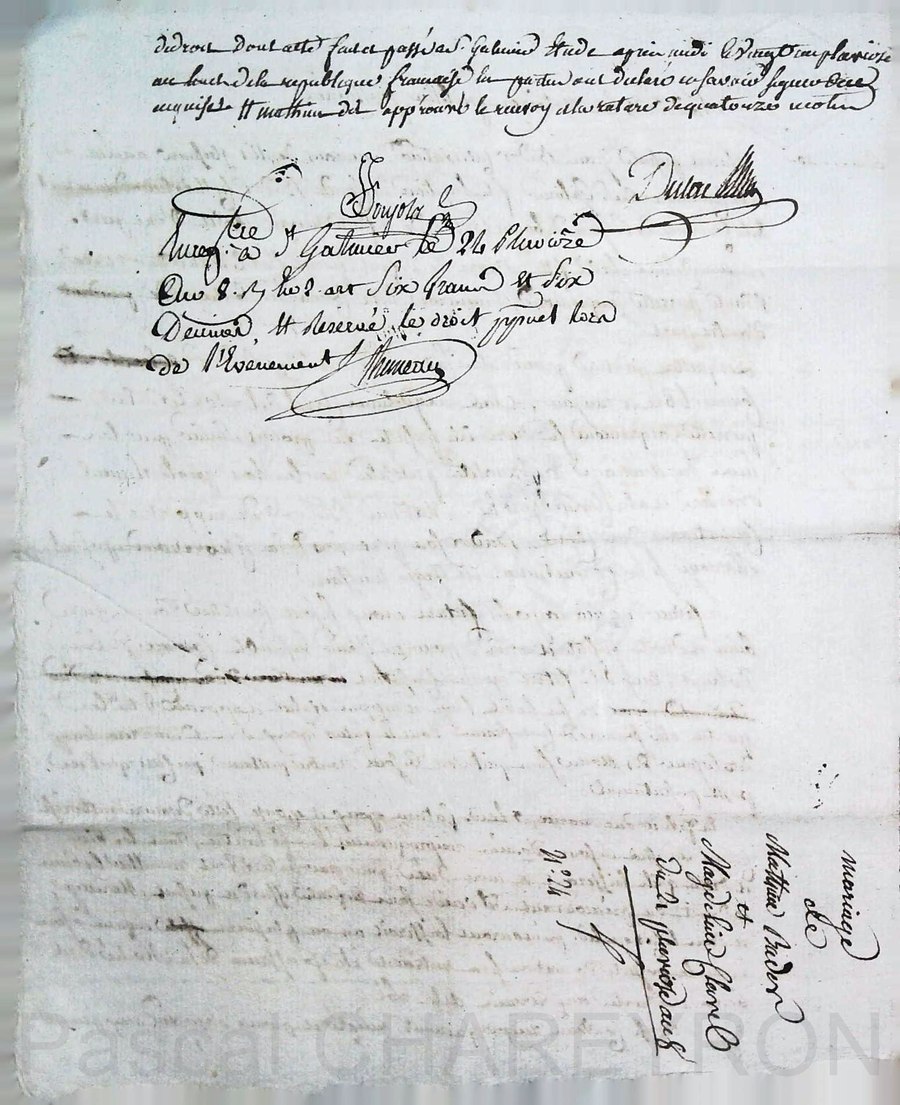 de droit dont acte fait et passé a St Galmier Etude apres midi le vingt un pluviose
an huit de la republique francaise les parties ont declaré ne savoir signer de ce
enquises et mathieu dit approuvé le renvoy a la rature de quatorze mots
Dulac
Enregtré à St Galmier le 24 Pluviôse
an 8. Six francs et Six
Decimes, et Reservé le droit lors
de l'Evenement
mariage
de
Mathieu Bador
et
Magdeleine Clavel
du pluviose an 8
N° 24
Pascal CHAREYRON